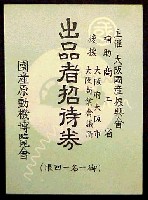 主催 大阪國産振興會
補助 商工省
後援 大阪府大阪市
大阪商工會議所
出品者招待券
國産原動機博覽會
(御一名一回限)